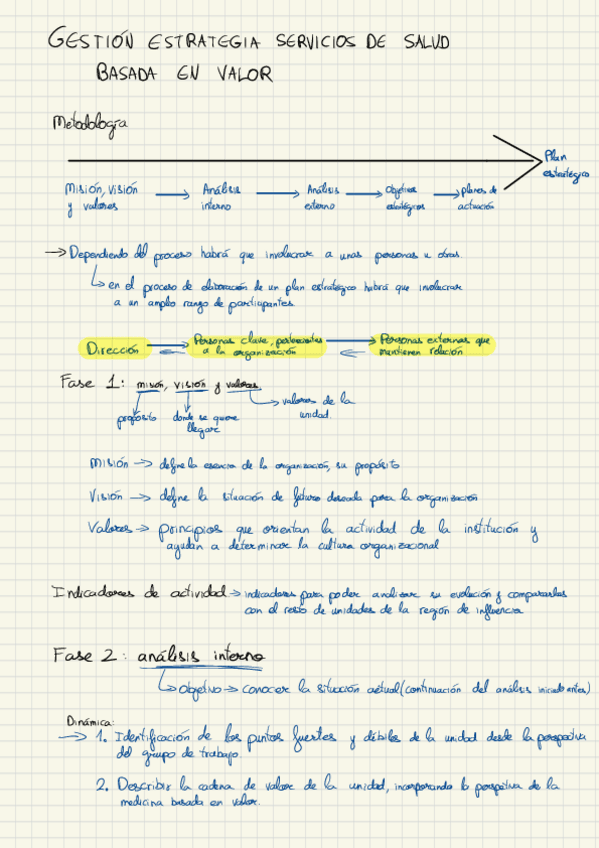 GESTIÓN ESTRATEGIA SERVICIOS DE SALUD
BASADA EN VALOR
Metodología
Plan estratégico
Misión, visión y valores → Análisis interno → Análisis externo → Objetivos estratégicos → planes de actuación
→ Dependiendo del proceso habrá que involucrar a unas personas u otras.
↳ en el proceso de elaboración de un plan estratégico habrá que involucrar
a un amplio rango de participantes
Dirección Personas clave, pertenecientes a la organización Personas externas que mantienen relación
Fase 1: misión, visión y valores
propósito donde se quiere llegar valores de la unidad.
Misión → define la esencia de la organización, su propósito
Visión → define la situación de futuro deseada para la organización
Valores → principios que orientan la actividad de la institución y
ayudan a determinar la cultura organizacional
Indicadores de actividad → indicadores para poder analizar su evolución y compararlas
con el resto de unidades de la región de influencia
Fase 2: análisis interno
↳ objetivo → conocer la situación actual (continuación del análisis iniciado antes)
Dinámica:
→ 1. Identificación de los puntos fuertes y débiles de la unidad desde la perspectiva
del grupo de trabajo
2. Describir la cadena de valor de la unidad, incorporando la perspetiva de la
medicina basada en valor.